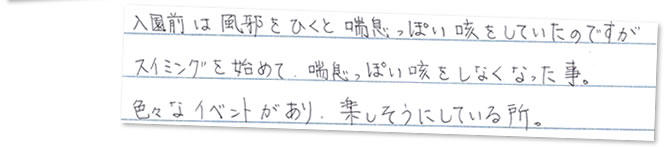 入園前は風邪をひくと喘息っぽい咳をしていたのですが
スイミングを始めて、喘息っぽい咳をしなくなった事。
色々なイベントがあり、楽しそうにしている所。